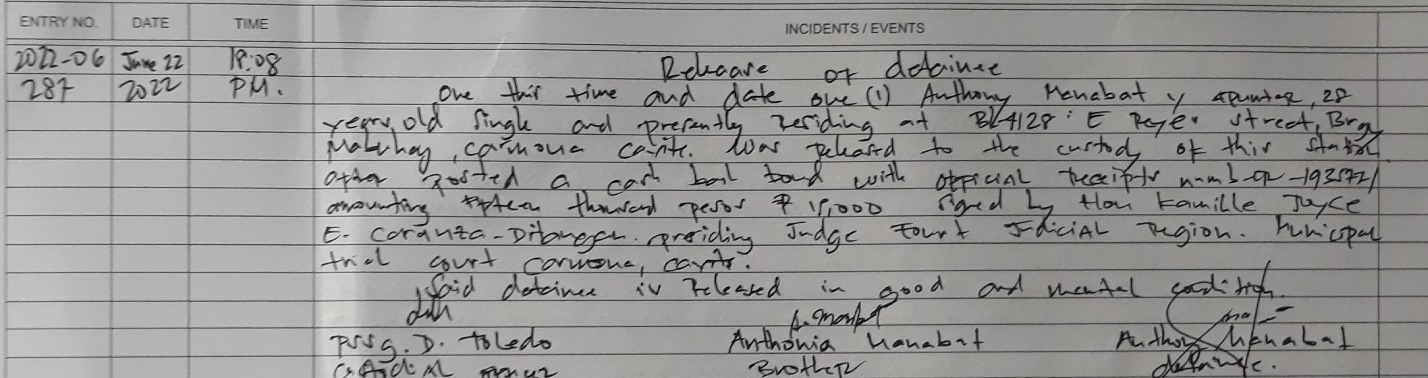 ENTRY NO. DATE TIME INCIDENTS / EVENTS
2022-06 June 22 18:08 Release of detainee
287 2022 PM. One this time and date one (1) Anthony Manabat y, 28
years old single and presently residing at Blk 4128: E Reyes street, Brgy
Mabuhay, Carmona Cavite. Was released to the custody of this station
after posted a cash bail bond with official receipts
amounting fifteen thousand pesos ₱ 15,000 signed by Hon Kamille Joyce
E. presiding Judge Fourt Judicial Region. Municipal
trial court Carmona, Cavite.
Said detainee is released in good and mental condition.
PSSg. D. Toledo Anthonia Manabat Anthony Manabat
Brother detainee.